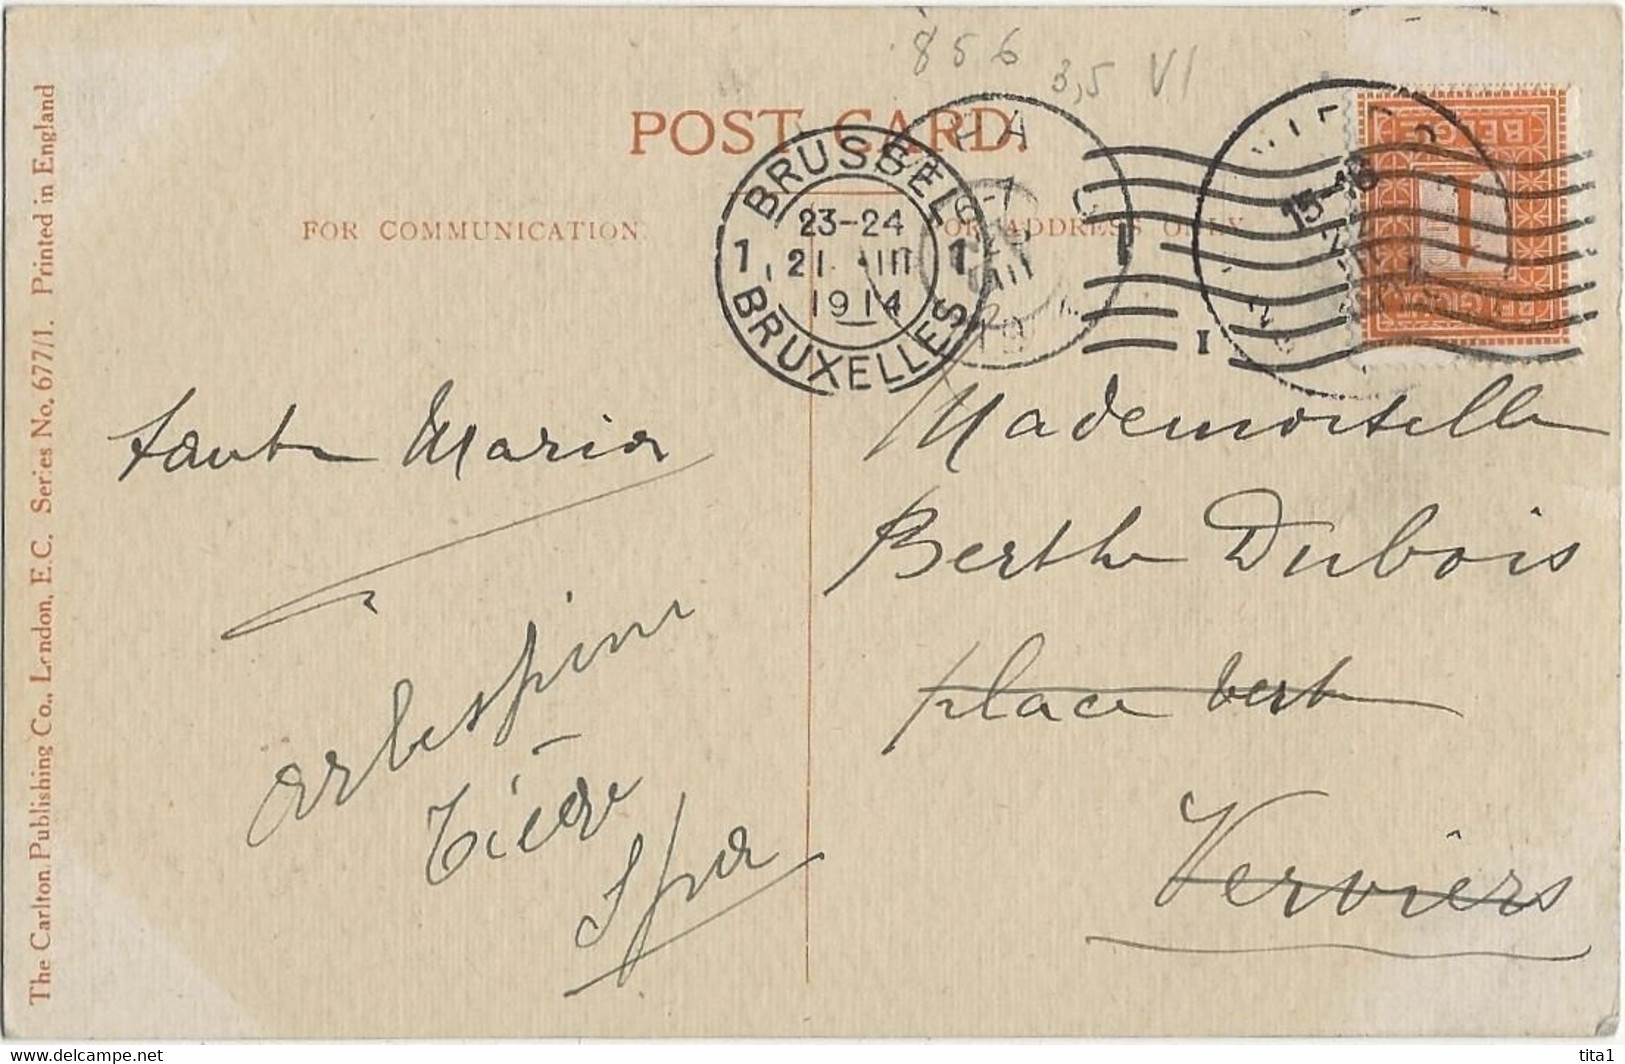 856 3,5 VI
POST CARD.
FOR COMMUNICATION.
FOR ADDRESS ONLY
BRUSSEL
23-24
1 21 III 1
1914
BRUXELLES
15-16
BELGIE
1
BELGIQUE
I
The Carlton Publishing Co., London, E.C. Series No. 677/1. Printed in England
tante Maria
Spa
Mademoiselle
Berthe Dubois
place Vert
Verviers
https://www.delcampe.net
tita1